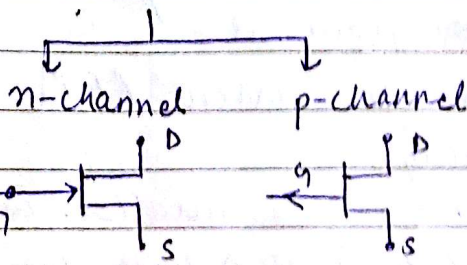 n-channel p-channel
D G D
S S